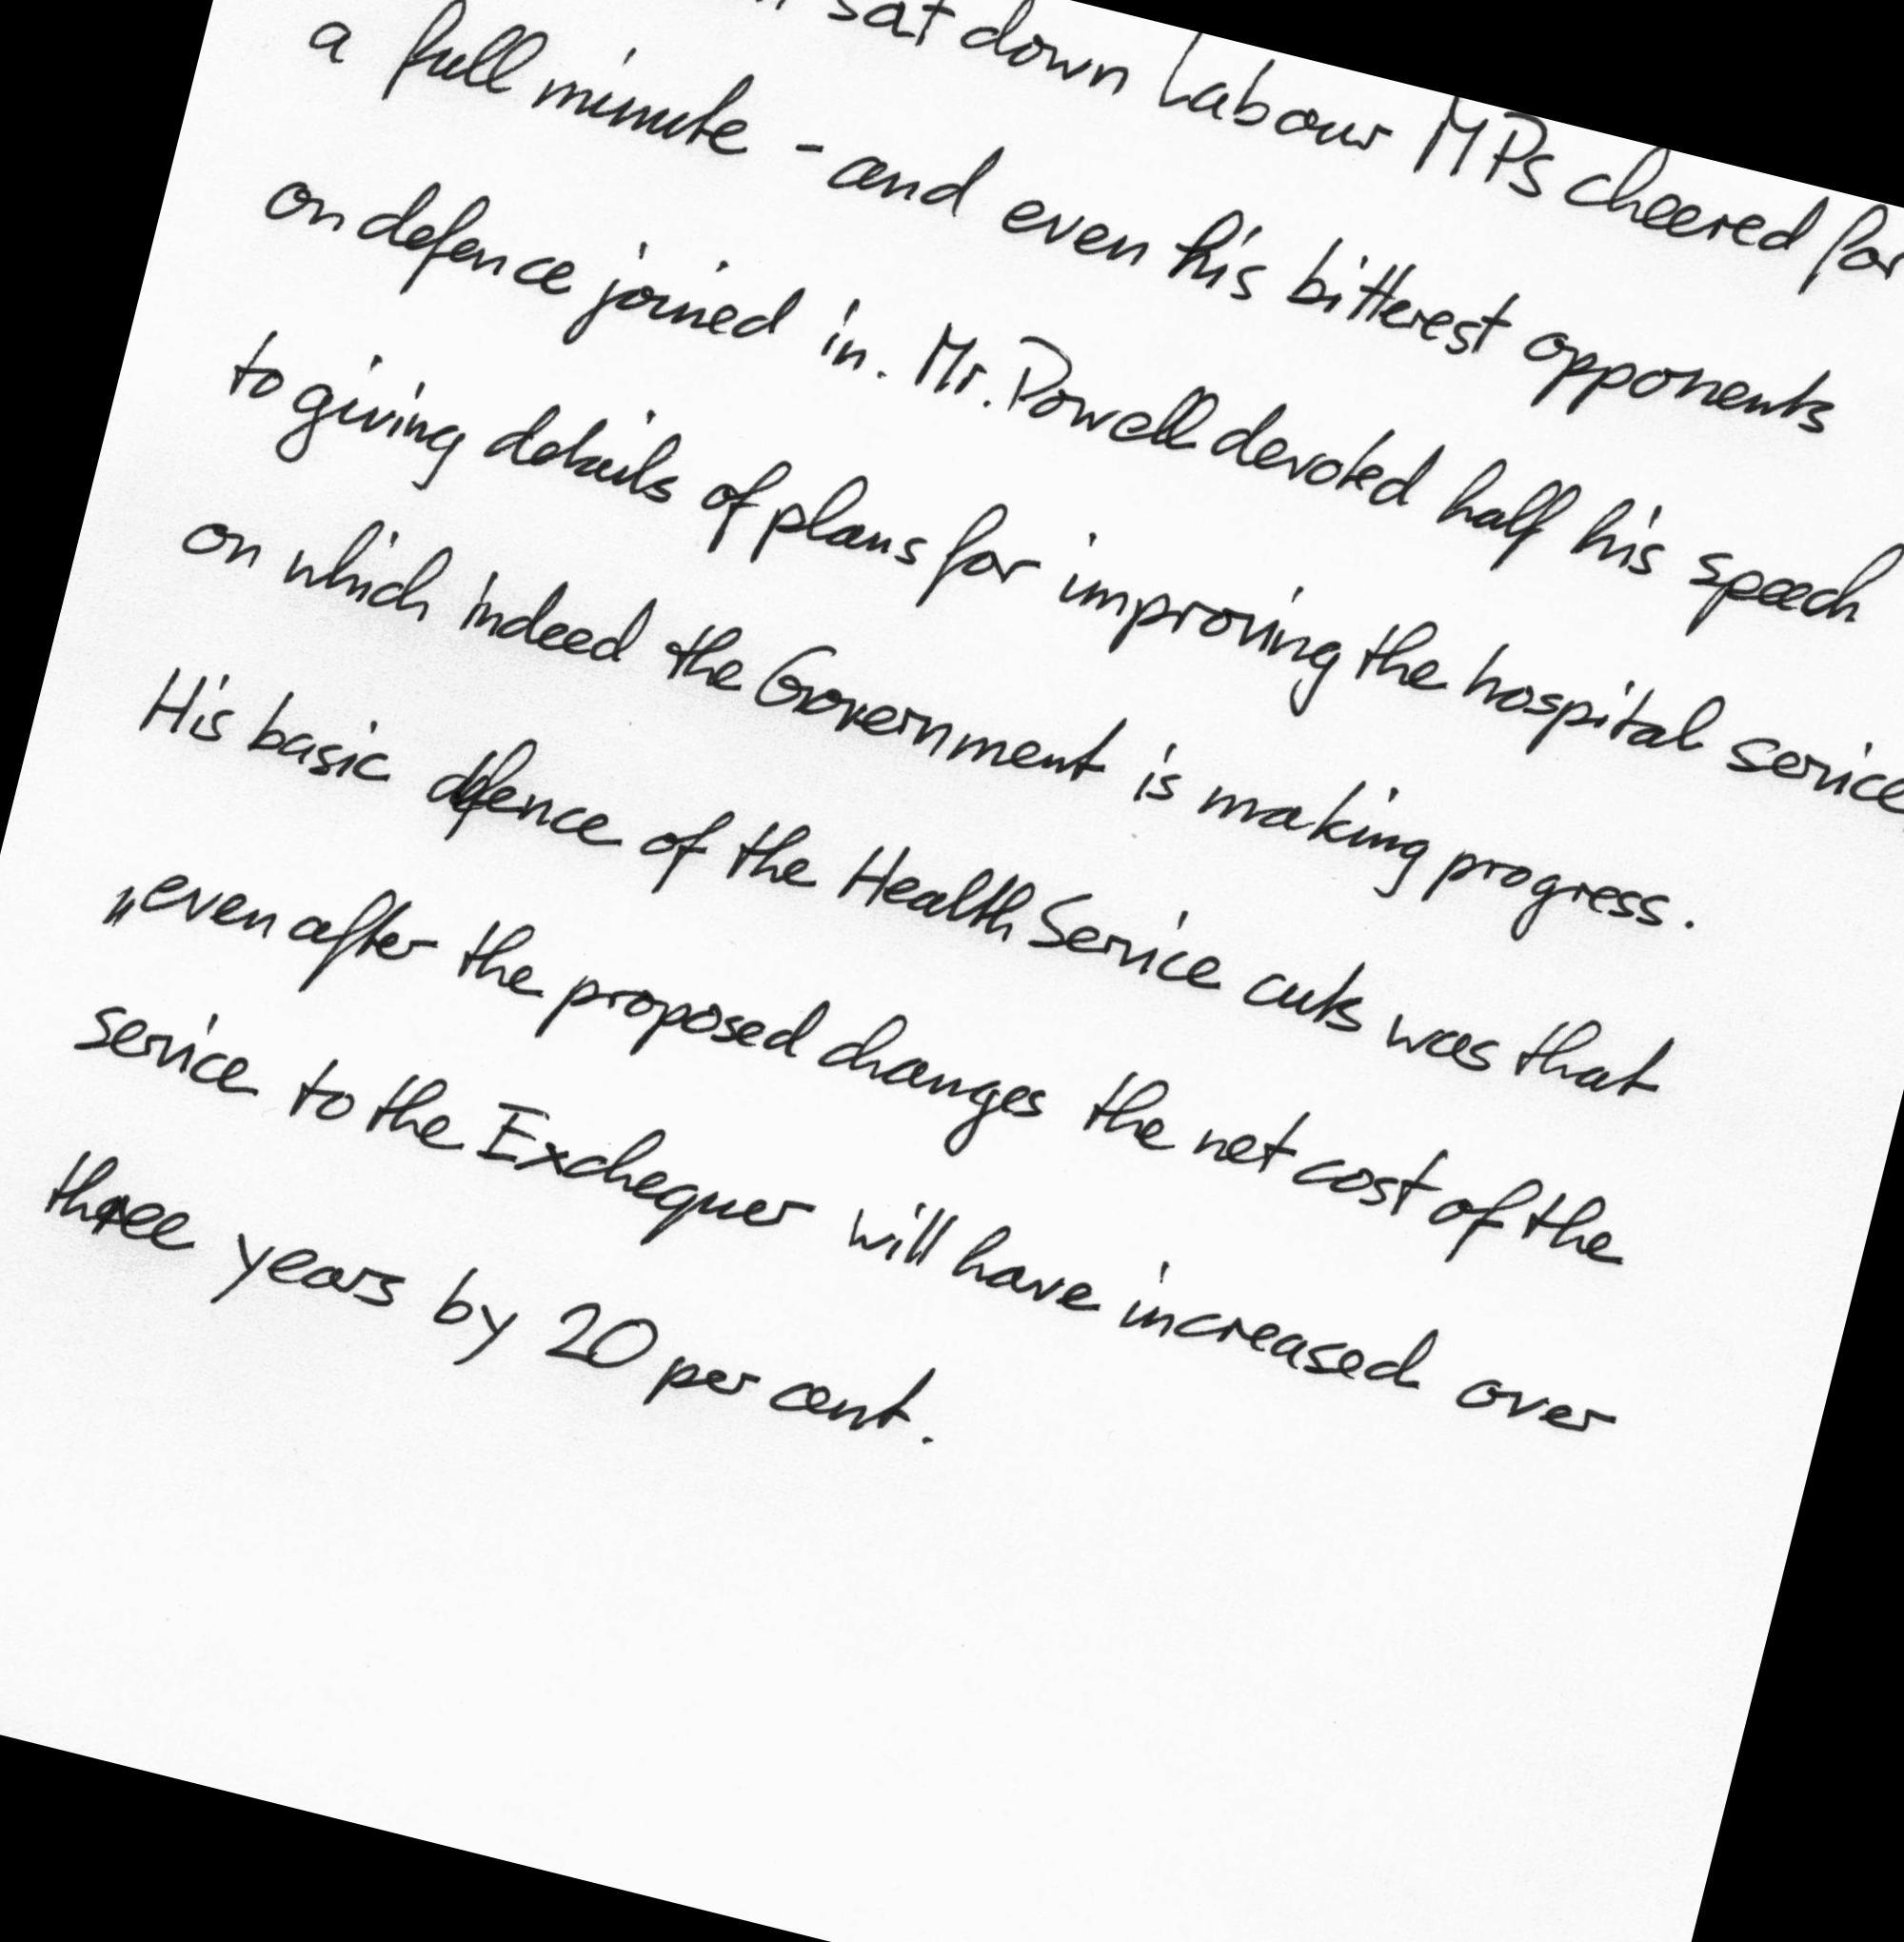 sat down Labour MPs cheered for
a full minute - and even his bitterest opponents
on defence joined in. Mr. Powell devoted half his speech
to giving details of plans for improving the hospital service
on which indeed the Government is making progress.
His basic defence of the Health Service cuts was that
„even after the proposed changes the net cost of the
service to the Exchequer will have increased over
three years by 20 per cent.